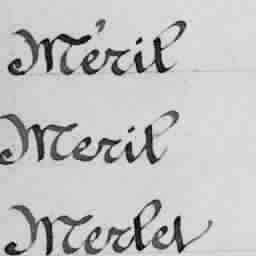 Méril
Meril
Merlet